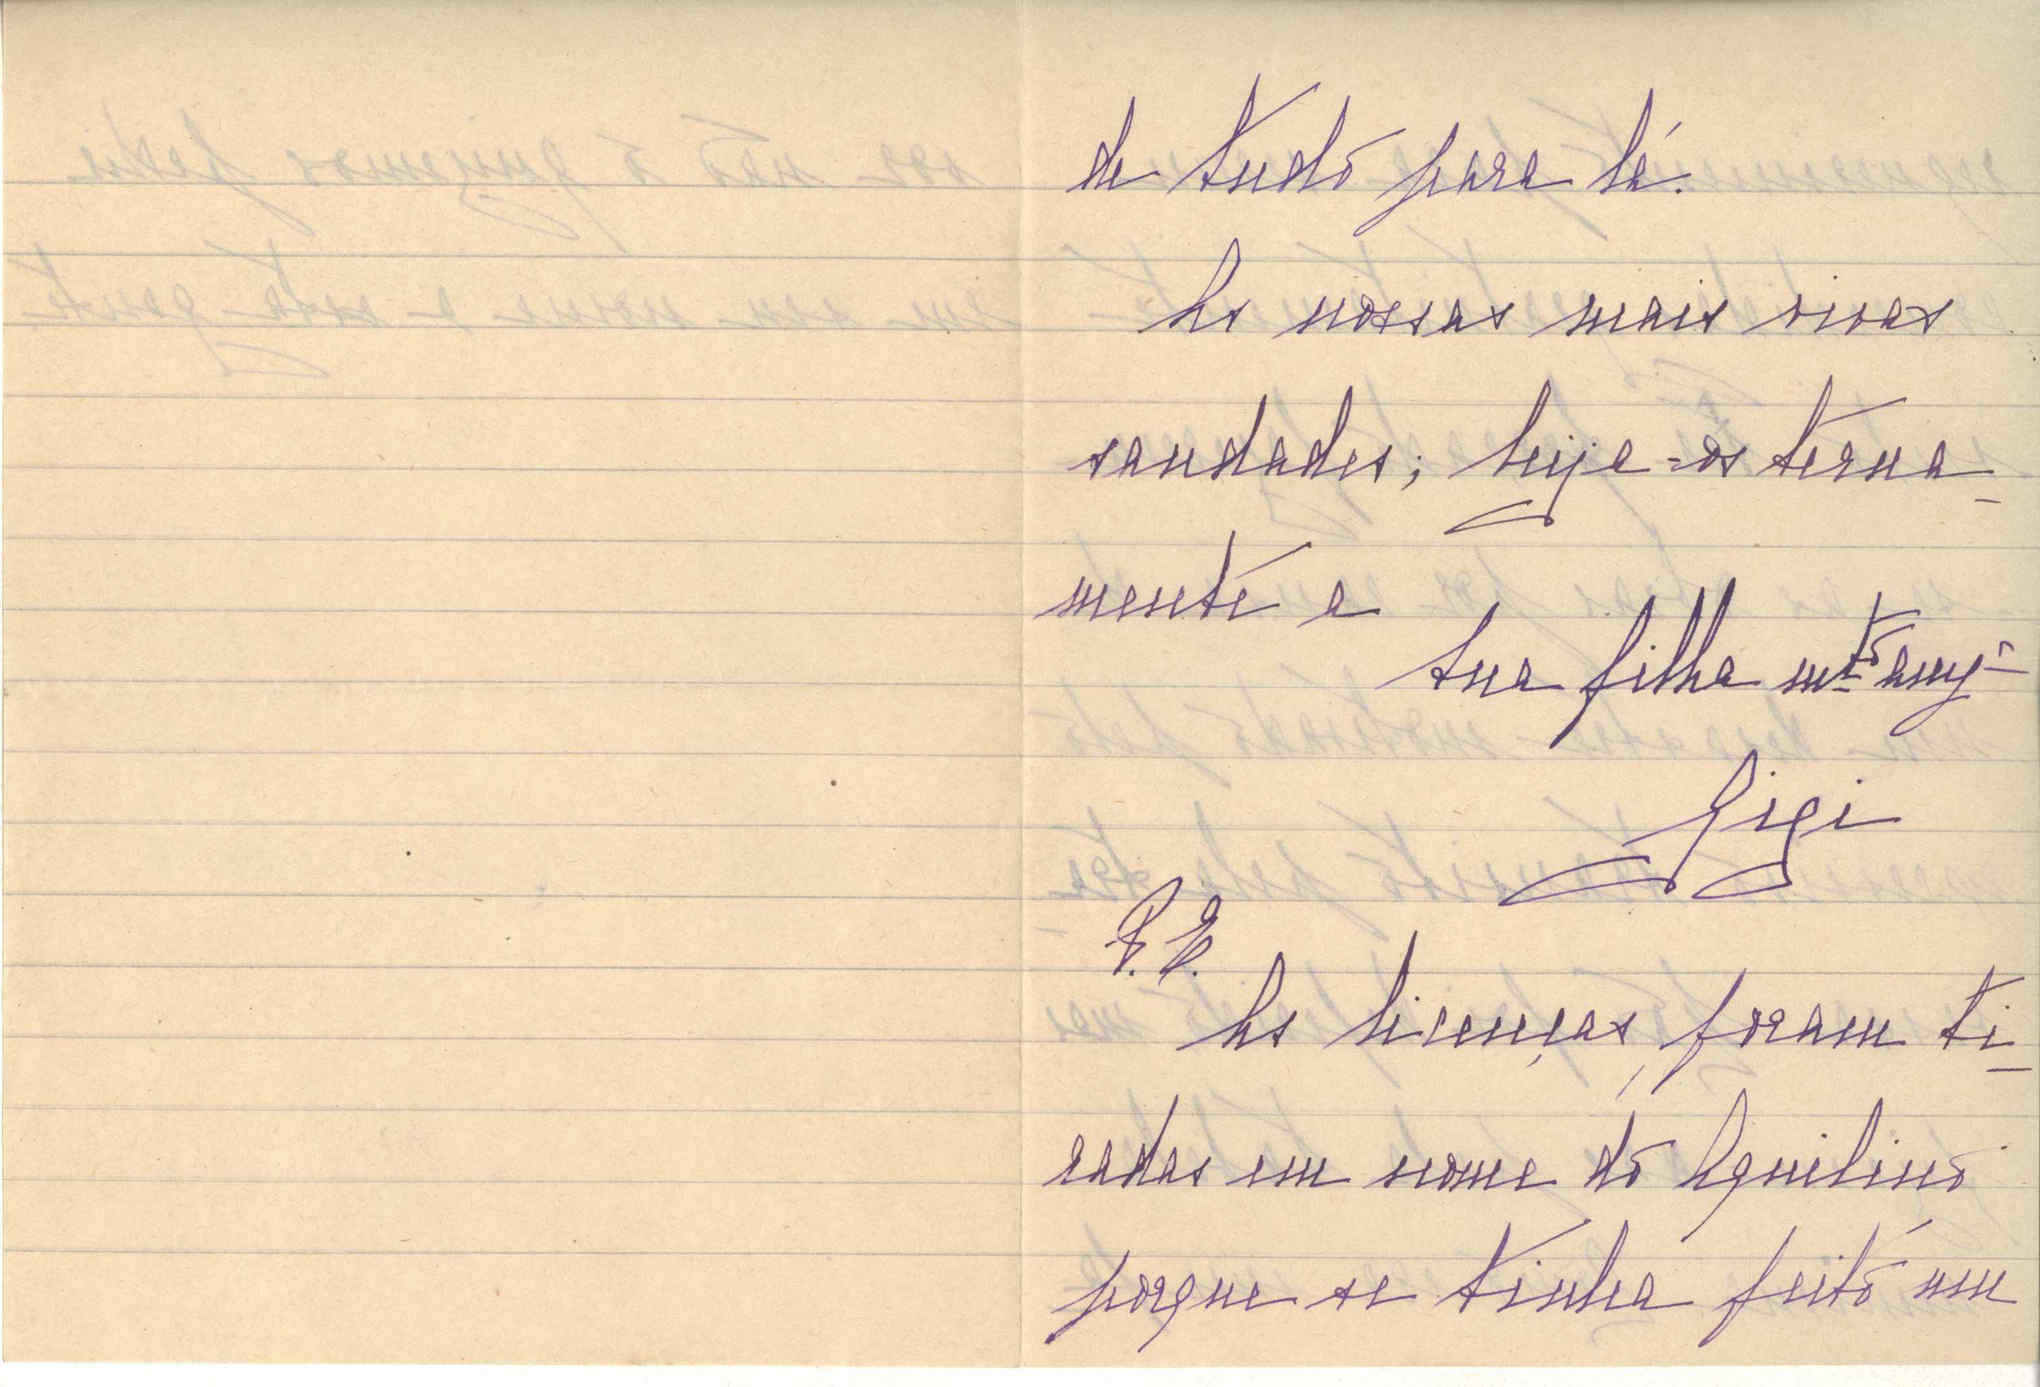 de tudo para lá.
As nossas mais vivas
saudades; beija-os terna-
mente a
tua filha mto amg
Gigi
P.E.
As licenças, foram ti-
radas em nome do Aquilino
porque se tinha feito um